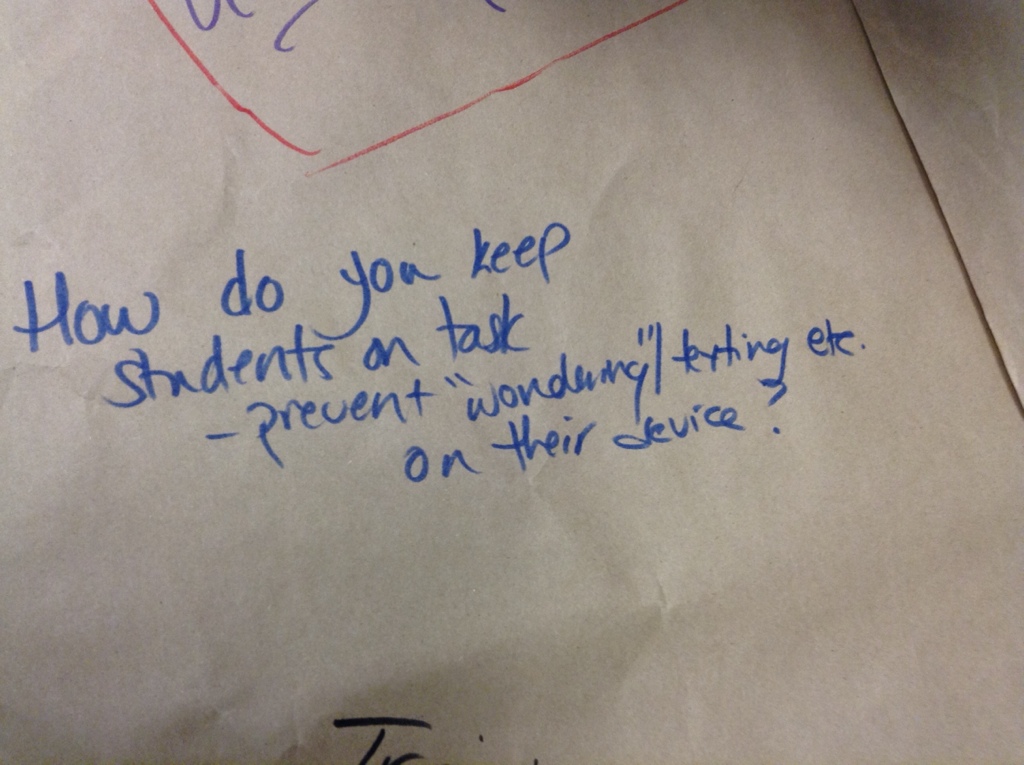 How do you keep
students on task
- prevent "wondering"/texting etc.
on their device?